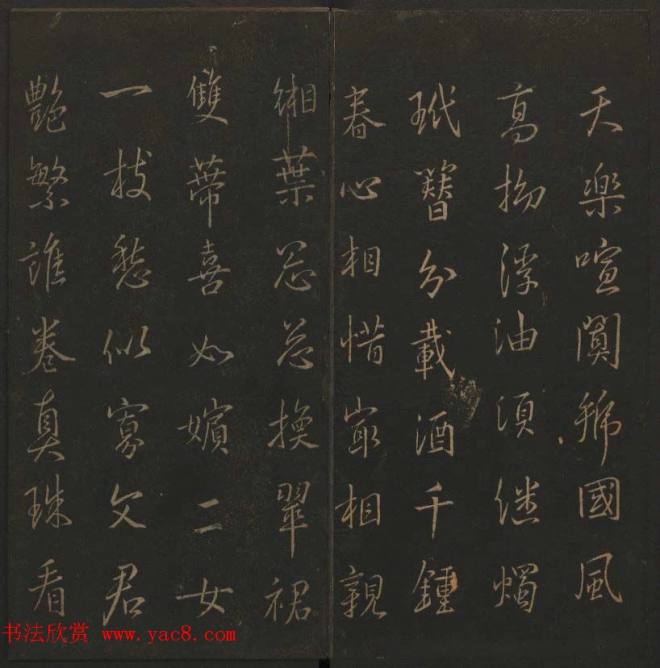 天樂喧闐國風
高浮油須继燭
玳簪分載酒千鍾
春心相惜最相親
緗葉忩忩換翠裙
雙蒂喜如嬪二女
一枝愁似寡文君
艷繁誰卷真珠看
书法欣赏 www.yac8.com